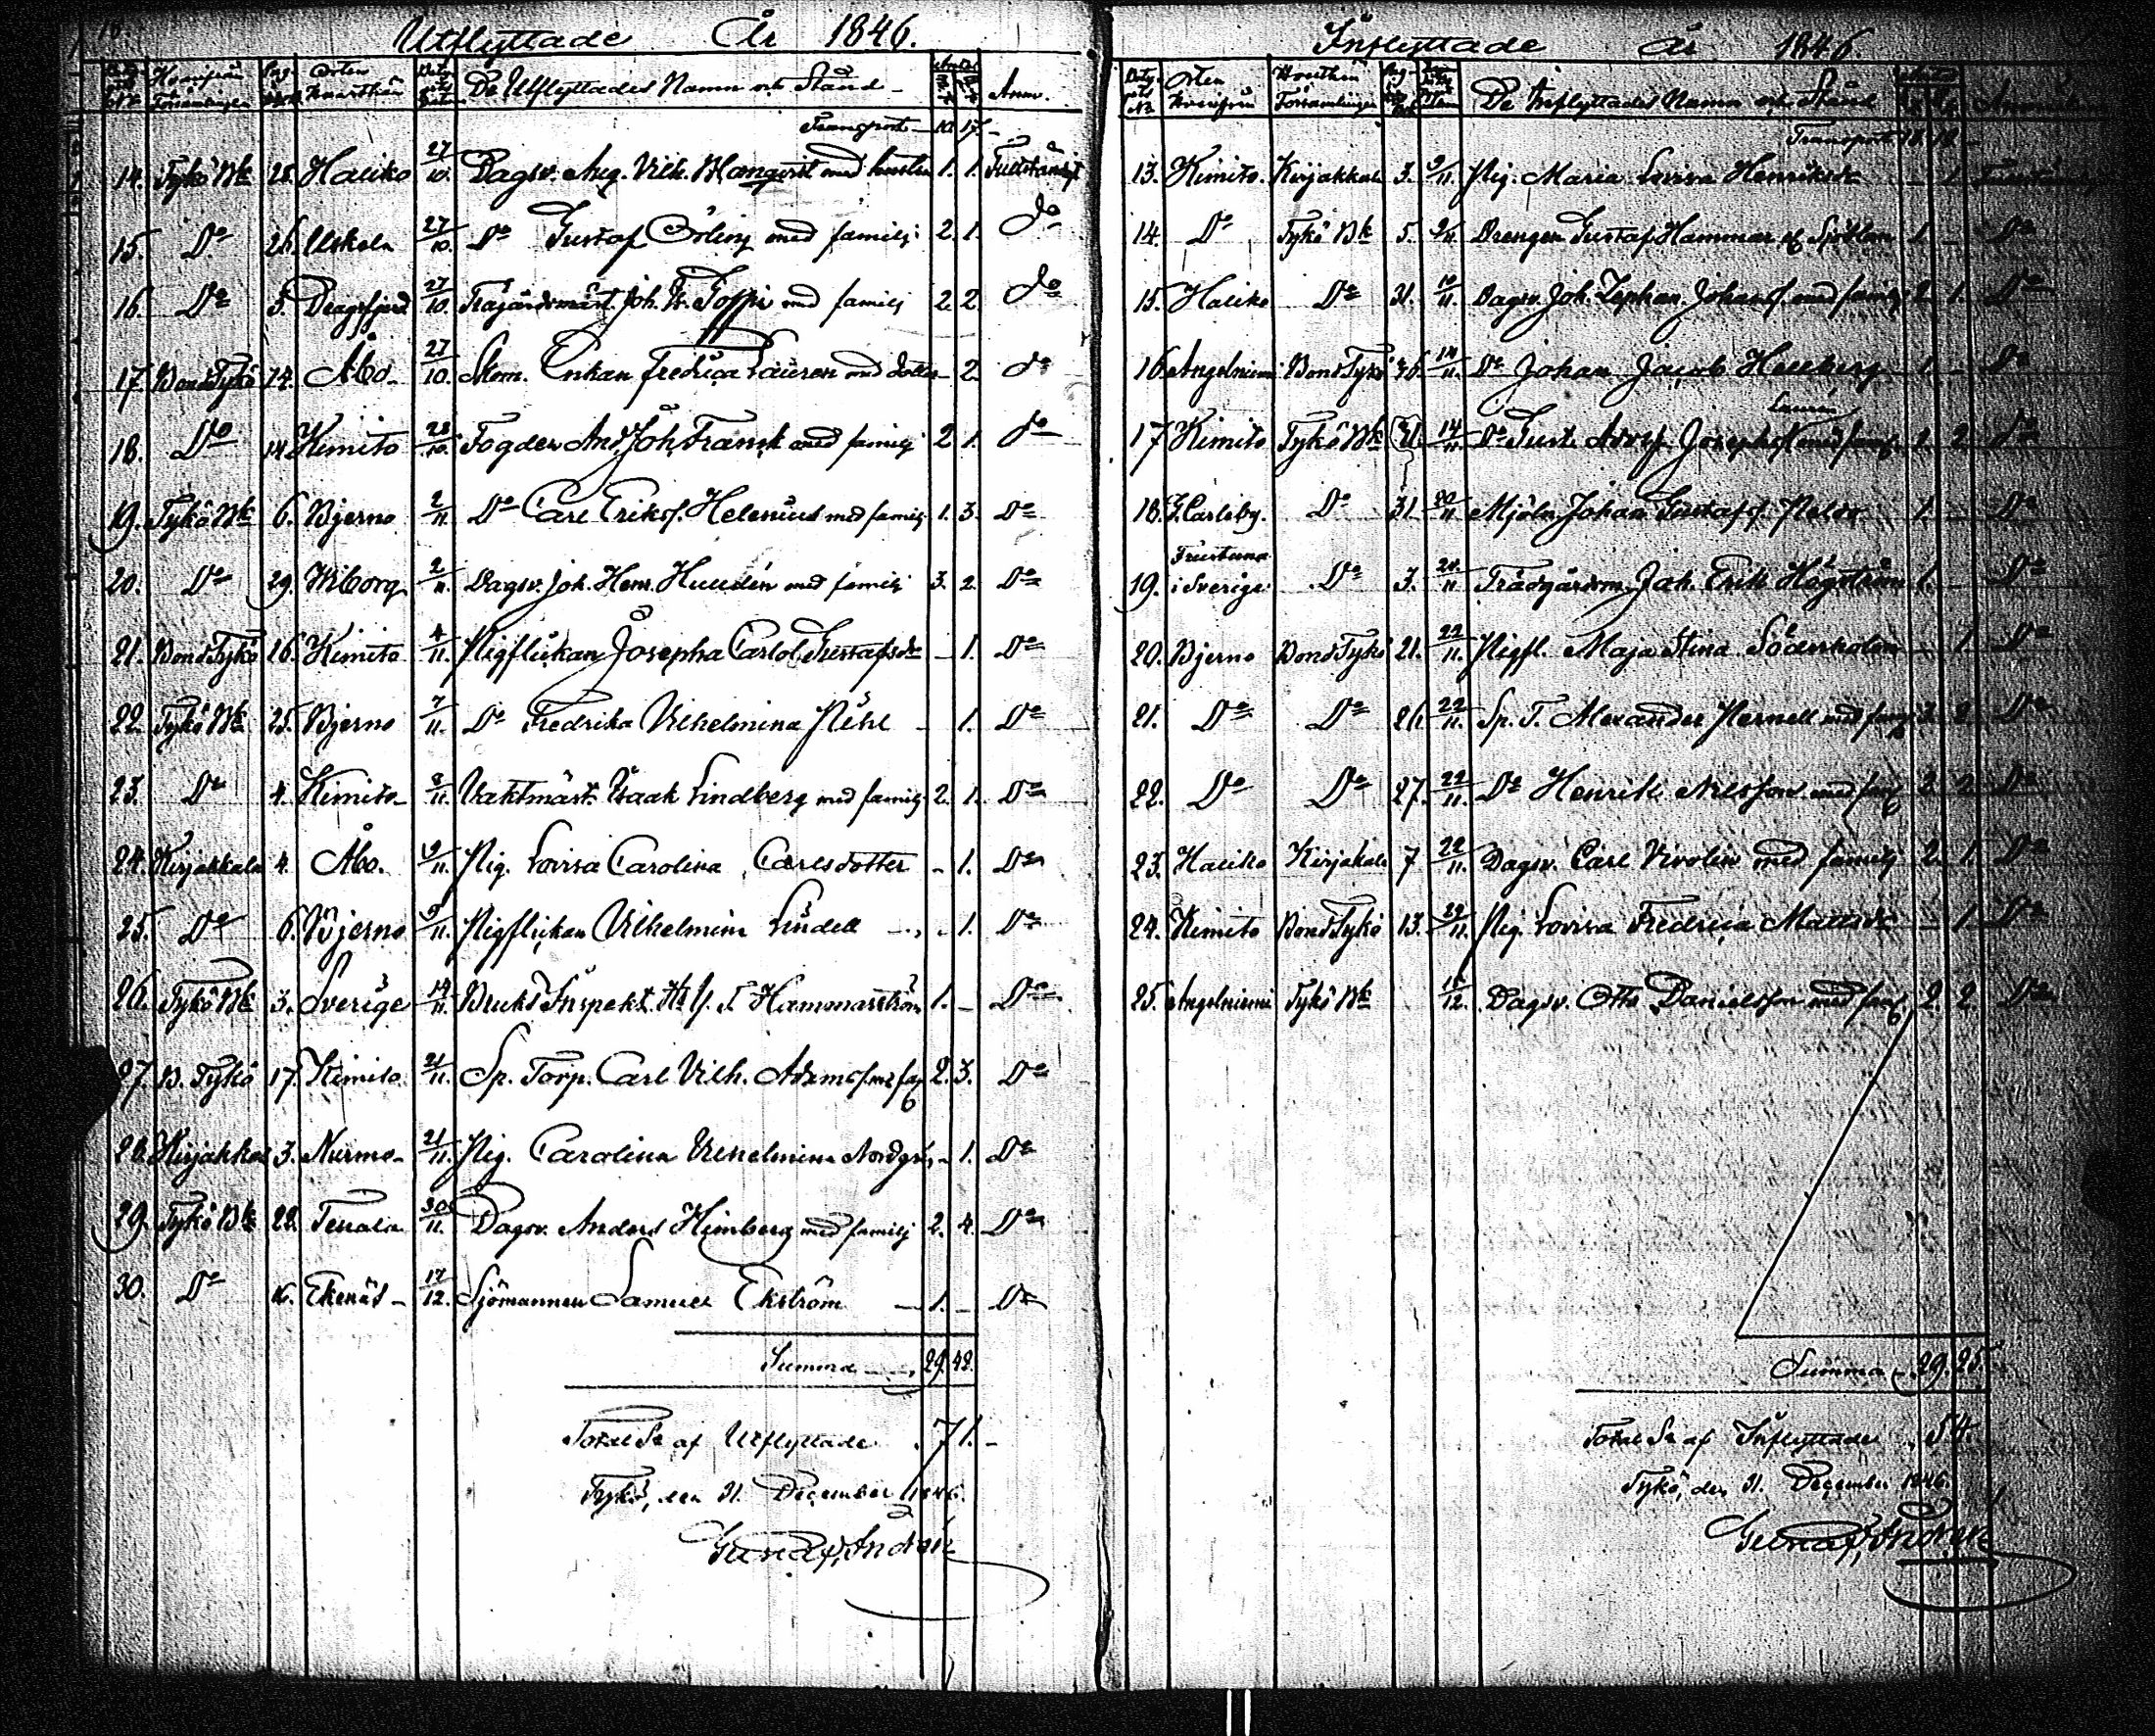 18.
Utflyttade År 1846.
De Utflyttades Namn och Stånd Anm.
Transport 10. 17.
14. Tykö Bk 25. Haliko 27/10. Dagsv. Aug. Vilh. Blomqvist med hustru 1. 1. Fullständigt
15. Do 26. Uskela 27/10. Do Gustaf Örling med familj 2. 1. do
16. Do 5. Dragsfjerd 27/10. Joh. med familj 2. 2. do
17. Bond Tykö 14. Åbo 27/10. Enkan Fredrica Lauren med dotter - 2. do
18. Do 14. Kimito 28/10. Fogden And. Joh. Fransk med familj 2. 1. do
19. Tykö Bk 6. Bjerno 2/11. Do Carl Eriksf. Helenius med familj 1. 3. Do
20. Do 29. Wiborg 2/11. Dagsv. Joh. Henr. med familj 3. 2. Do
21. Bond Tykö 16. Kimito 4/11. Pigflickan Josepha Carlot. Gustafsdr - 1. Do
22. Tykö Bk 25. Bjerno 7/11. Do Fredrika Vilhelmina Pihl - 1. Do
23. Do 4. Kimito 8/11. Vaktmäst. Isaak Lindberg med familj 2. 1. Do
24. Kirjakkala 4. Åbo. 9/11. Pig. Lovisa Carolina Carlsdotter - 1. Do
25. Do 6. Bjerno 9/11. Pigflickan Vilhelmina Lindell - 1. Do
26. Tykö Bk 3. Sverige 14/11. Bruks Inspekt. Hammarström 1. - Do
27. B. Tykö 17. Kimito 21/11. Sp. Torp. Carl Vilh. Adamsf. med fam 2. 3. Do
28. Kirjakkala 3. Nurmo 21/11. Pig. Carolina Vilhelmina - 1. Do
29. Tykö Bk 22. Tenala 30/11. Dagsv. Anders Himberg med familj 2. 4. Do
30. Do 16. Ekenäs 17/12. Sjömannen Samuel Ekström 1. - Do
Summa 29. 42.
Total Sa af Utflyttade 71.
Tykö, den 31. December 1846.
Inflyttade År 1846.
De Inflyttades Namn och Stånd
Transport
13. Kimito. Kirjakkala 3. 9/11. Pig. Maria Lovisa Henriksdr - 1.
14. Do Tykö Bk 5. 9/11. Drengen Gustaf Hammar 1. - Do
15. Haliko Do 31. 10/11. Dagsv. Joh. Zephan. Johansf. med familj 2. 1. Do
16. Angelniemi Bond Tykö 14/11. Do Johan Jacob Hellberg 1. - Do
Laurin
17 Kimito Tykö Bk 31. 14/11. Do Gust. Adolf Josephsf. med fam. 2. do
18. Do 31. 20/11. Mjöln. Johan Gustafsf. 1. - Do
19. i Sverige Do 3. 20/11. Trädgårdsm. Joh. Erik Högström 1. - Do
20. Bjerno Bond Tykö 21. 22/11. Pigfl. Maja Stina Söderholm - 1. Do
21. Do Do 26. 22/11. Sp. T. Alexander Pernell med fam 3. 2. Do
22. Do Do 27. 22/11. Do Henrik Nilsson med fam 3. 2. Do
23. Haliko Kirjakala 7 22/11. Dagsv. Carl Vivolin med familj 2. 1. Do
24. Kimito Bond Tykö 13. 22/11. Pig. Lovisa Fredrica Mattsdr - 1. Do
25. Angelniemi Tykö Bk 15/12. Dagsv. Otto Danielsson med fam 2. 2. Do
Summa 29. 25.
Total Sa af Inflyttade 54.
Tykö, den 31. December 1846.